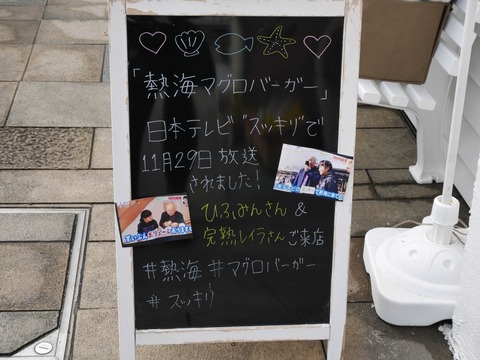 「熱海マグロバーガー」
日本テレビ"スッキリ"で
11月29日放送
されました!
ひふみんさん &
完熟レイラさんご来店
#熱海 #マグロバーガー
#スッキリ